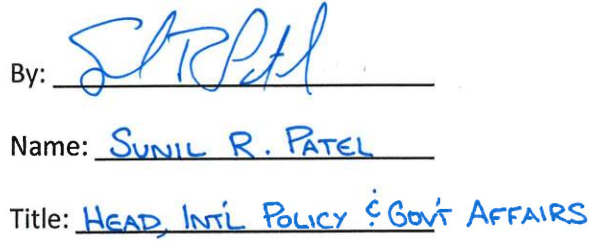 By: S R Patel
Name: SUNIL R. PATEL
Title: HEAD, INT'L POLICY & GOV'T AFFAIRS